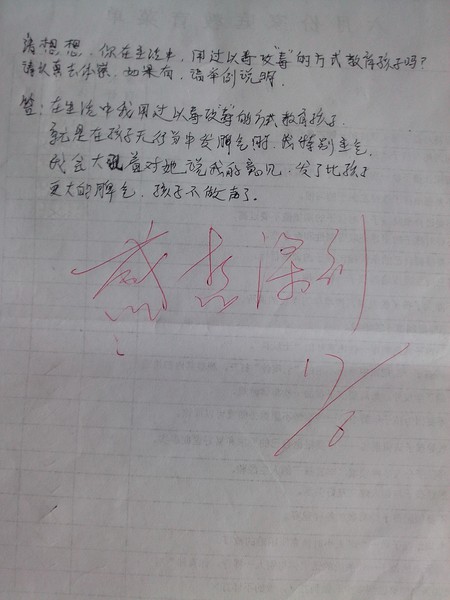 请想想,你在生活中,用过以毒攻"毒"的方式教育孩子吗?
请认真去体察,如果有,请举例说明.
答:在生活中我用过以毒攻"毒"的方式教育孩子.
就是在孩子无行当中发脾气时.我特别生气.
我会大吼着对她说我的意见,发了比孩子
更大的脾气,孩子不做声了.
感想深刻
17/6